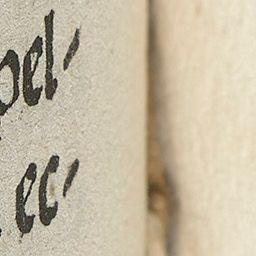 pel⸗
ec⸗